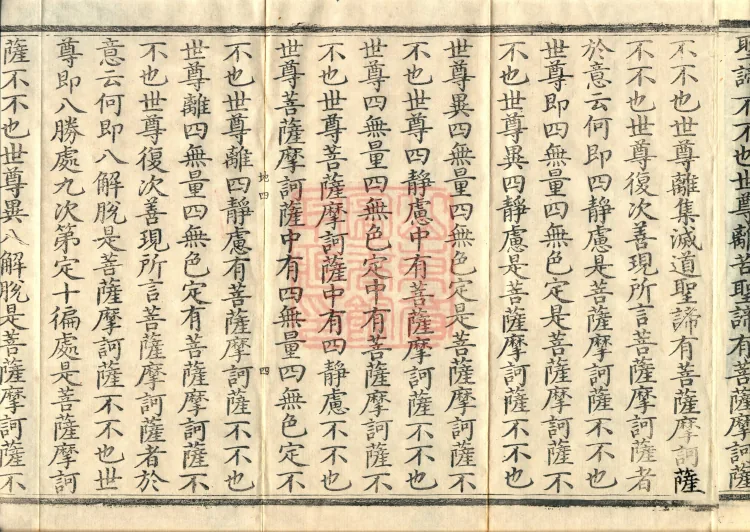 聖諦不不也世尊離苦聖諦有菩薩摩訶薩
不不也世尊離集滅道聖諦有菩薩摩訶薩
不不也世尊復次善現所言菩薩摩訶薩者
於意云何即四靜慮是菩薩摩訶薩不不也
世尊即四無量四無色定是菩薩摩訶薩不
不也世尊異四靜慮是菩薩摩訶薩不不也
世尊異四無量四無色定是菩薩摩訶薩不
不也世尊四靜慮中有菩薩摩訶薩不不也
世尊四無量四無色定中有菩薩摩訶薩不
不也世尊菩薩摩訶薩中有四靜慮不不也
世尊菩薩摩訶薩中有四無量四無色定不
地四 四
不也世尊離四靜慮有菩薩摩訶薩不不也
世尊離四無量四無色定有菩薩摩訶薩不
不也世尊復次善現所言菩薩摩訶薩者於
意云何即八解脫是菩薩摩訶薩不不也世
尊即八勝處九次第定十徧處是菩薩摩訶
薩不不也世尊異八解脫是菩薩摩訶薩不